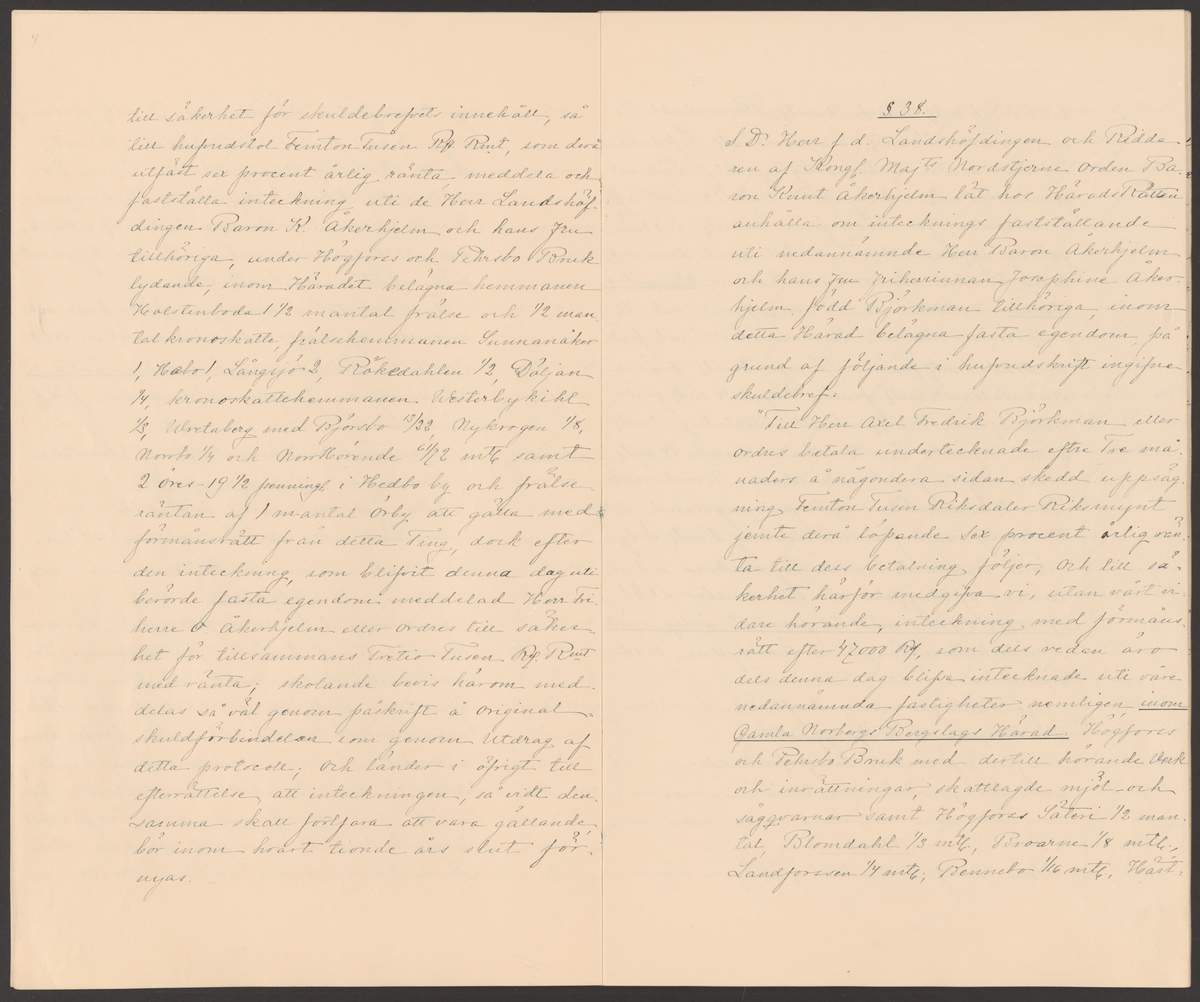 till säkerhet för skuldebrefvets innehåll, så
till hufvudstol Femton Tusen Rdr Rmt, som derå
utfäst sex procent årlig ränta, meddela och
fastställa inteckning uti de, Herr Landshöf-
dingen Baron K. Åkerhjelm och hans Fru
tillhöriga, under Högfors och Pehrsbo Bruk
lydande, inom Häradet belägna hemmanen
Holstenboda 1 1/2 mantal frälse och 1/2 man-
tal kronoskatte, frälsehemmanen Sunnanåker
1, Habo 1, Långsjö 2, Räkedahlen 1/2, Döljan
1/4, kronoskattehemmanen Westerbykihl
1/3, Wretaberg med Björsbo 13/32 Nykrogen 1/8,
Norrbo 1/4 och Norrhörende 61/72 mtl samt
2 öres - 19 1/2 penningl i Hedbo by och frälse
räntan af 1 mantal Örby att gälla med
förmånsrätt från detta Ting, dock efter
den inteckning, som blifvit denna dag uti
berörde fasta egendom meddelad Herr Fri-
herre O Åkerhjelm eller ordres till säker-
het för tillsammans Tretio Tusen Rdr. Rmt
med ränta; skolande bevis härom med-
delas så väl genom påskrift å original
skuldförbindelsen som genom Utdrag af
detta protocoll; och länder i öfrigt till
efterrättelse, att inteckningen, så vidt den-
samma skall fortfara att vara gällande,
bör inom hvart tionde års slut för-
nyas.
§ 38.
S. D. Herr f. d. Landshöfdingen och Ridda-
ren af Kongl. Majts Nordstjerne Orden Ba-
ron Knut Åkerhjelm lät hos HäradsRätten
anhålla om intecknings fastställande
uti nedannämnde Herr Baron Åkerhjelm
och hans Fru Friherrinnan Josephine Åker-
hjelm, född Björkman tillhöriga, inom
detta Härad belägna fasta egendom, på
grund af följande i hufvudskrift ingifne
skuldebref:
"Till Herr Axel Fredrik Björkman eller
ordres betala undertecknade efter Tre må-
naders å någondera sidan skedd uppsäg-
ning Femton Tusen Riksdaler Riksmynt
jemte derå löpande Sex procent årlig rän-
ta till dess betalning följer, Och till sä-
kerhet härför medgifva vi, utan vårt vi-
dare hörande, inteckning med förmåns-
rätt efter 47,000 Rdr, som dels redan äro
dels denna dag blifva intecknade uti våre
nedannämnda fastigheter nemligen inom
Gamla Norbergs Bergslags Härad: Högfors
och Pehrsbo Bruk med dertill hörande Verk
och inrättningar, skattlagde mjöl- och
sågqvarnar samt Högfors Säteri 1/2 man-
tal, Blomdahl 1/3 mtl., Broarne 1/8 mtl.,
Landforssen 1/4 mtl; Bennebo 1/16 mtl, Häst-